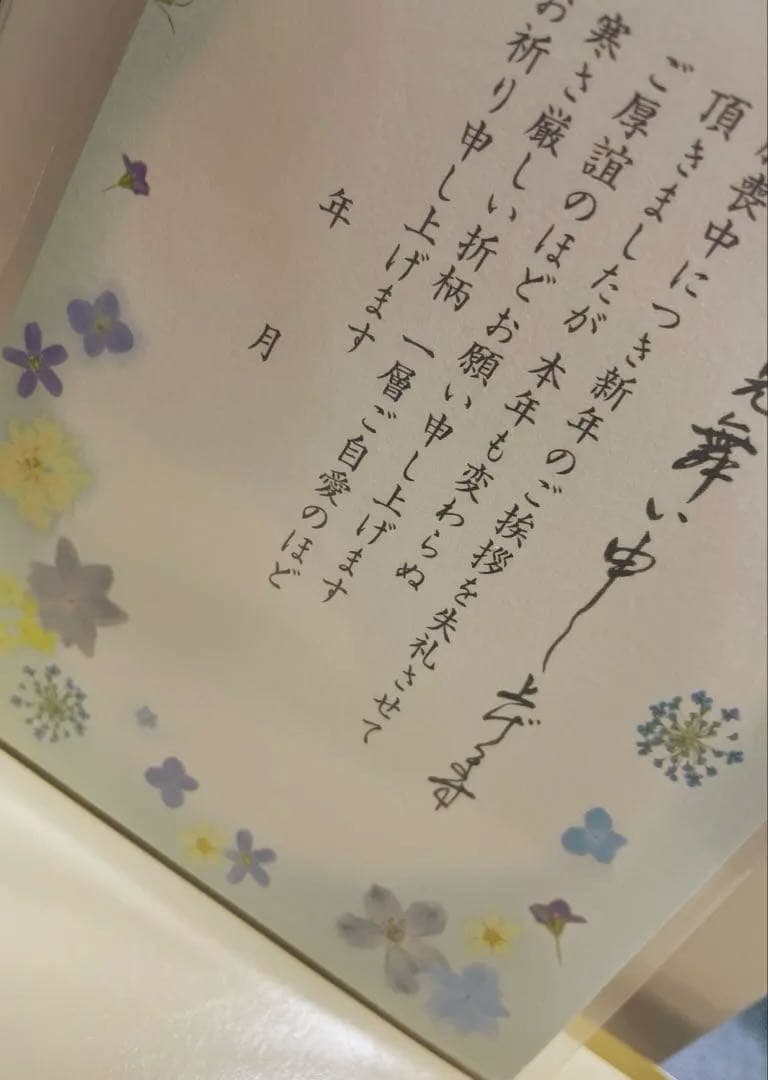 見舞い申し上げます
喪中につき新年のご挨拶を失礼させて
頂きましたが 本年も変わらぬ
ご厚誼のほどお願い申し上げます
寒さ厳しい折柄 一層ご自愛のほど
お祈り申し上げます
年
月